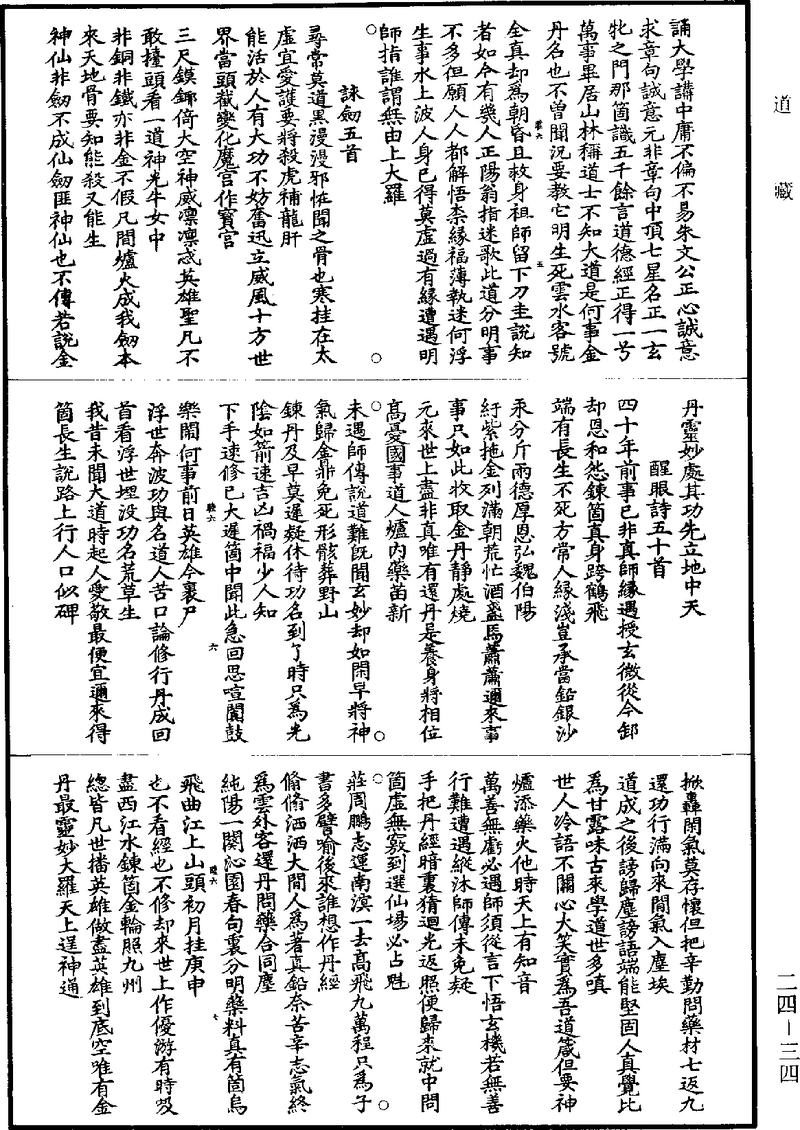 道藏
誦大學講中庸不偏不易朱文公正心誠意
求章句誠意元非章句中頂七星名正一玄
牝之門那箇識五千餘言道德經正得一亏
萬事畢居山林稱道士不知大道是何事金
丹名也不曾聞況要教它明生死雲水客號
全真却為朝昏且救身祖師留下刀圭說知
者如今有幾人正陽翁指迷歌此道分明事
不多但願人人都解悟柰緣福薄執迷何浮
生事水上波人身已得莫虛過有緣遭遇明
師指誰謂無由上大羅
詠劒五首
尋常莫道黑漫漫邪恠聞之骨也寒挂在太
虛宜愛護要將殺虎補龍肝
能活於人有大功不妨奮迅立威風十方世
界當頭截變化魔宫作寳宫
三尺鏌鋣倚大空神威凛凛惑英雄聖凡不
敢擡頭看一道神光牛女中
非銅非鐵亦非金不假凡間爐火成我劒本
來天地骨要知能殺又能生
神仙非劒不成仙劒匪神仙也不傳若說金
丹靈妙處其功先立地中天
醒眼詩五十首
四十年前事已非真師緣遇授玄微從今卸
却恩和怨鍊箇真身跨鶴飛
端有長生不死方常人緣淺豈承當鉛銀沙
汞分斤兩德厚恩弘魏伯陽
紆紫拖金列滿朝荒忙酒盞馬蕭蕭邇來事
事只如此收取金丹静處燒
元來世上盡非真唯有還丹是養身將相位
髙憂國事道人爐内藥苗新
未遇師傳說道難旣聞玄妙却如閑早將神
氣歸金鼎免死形骸葬野山
鍊丹及早莫遲疑休待功名到了時只為光
陰如箭速吉凶禍福少人知
下手速修已大遲箇中聞此急回思喧闐鼓
樂閙何事前日英雄今褁尸
浮世奔波功與名道人苦口論修行丹成回
首看浮世埋没功名荒草生
我昔未聞大道時起人愛敬最便宜邇來得
箇長生說路上行人口似碑
掀轟閑氣莫存懷但把辛勤問藥材七返九
還功行滿向來閒氣入塵埃
道成之後謗歸塵謗語端能堅固人真覺比
為甘露味古來學道世多嗔
世人冷語不關心大笑實為吾道箴但要神
爐添藥火他時天上有知音
萬善無虧必遇師須從言下悟玄機若無善
行難遭遇縱沐師傳未免疑
手把丹經暗裏猜迴光返照便歸來就中問
箇虛無竅到選仙場必占魁
莊周鵬志運南溟一去髙飛九萬程只為子
書多譬喻後來誰想作丹經
翛翛洒洒大閒人為著真鉛奈苦辛志氣終
為雲外客還丹問藥合同塵
純陽一闋沁園春句裏分明藥料真有箇烏
飛曲江上山頭初月挂庚申
也不看經也不修却來世上作優游有時吸
盡西江水鍊箇金輪照九州
總皆凡世播英雄做盡英雄到底空唯有金
丹最靈妙大羅天上逞神通
二四－三四